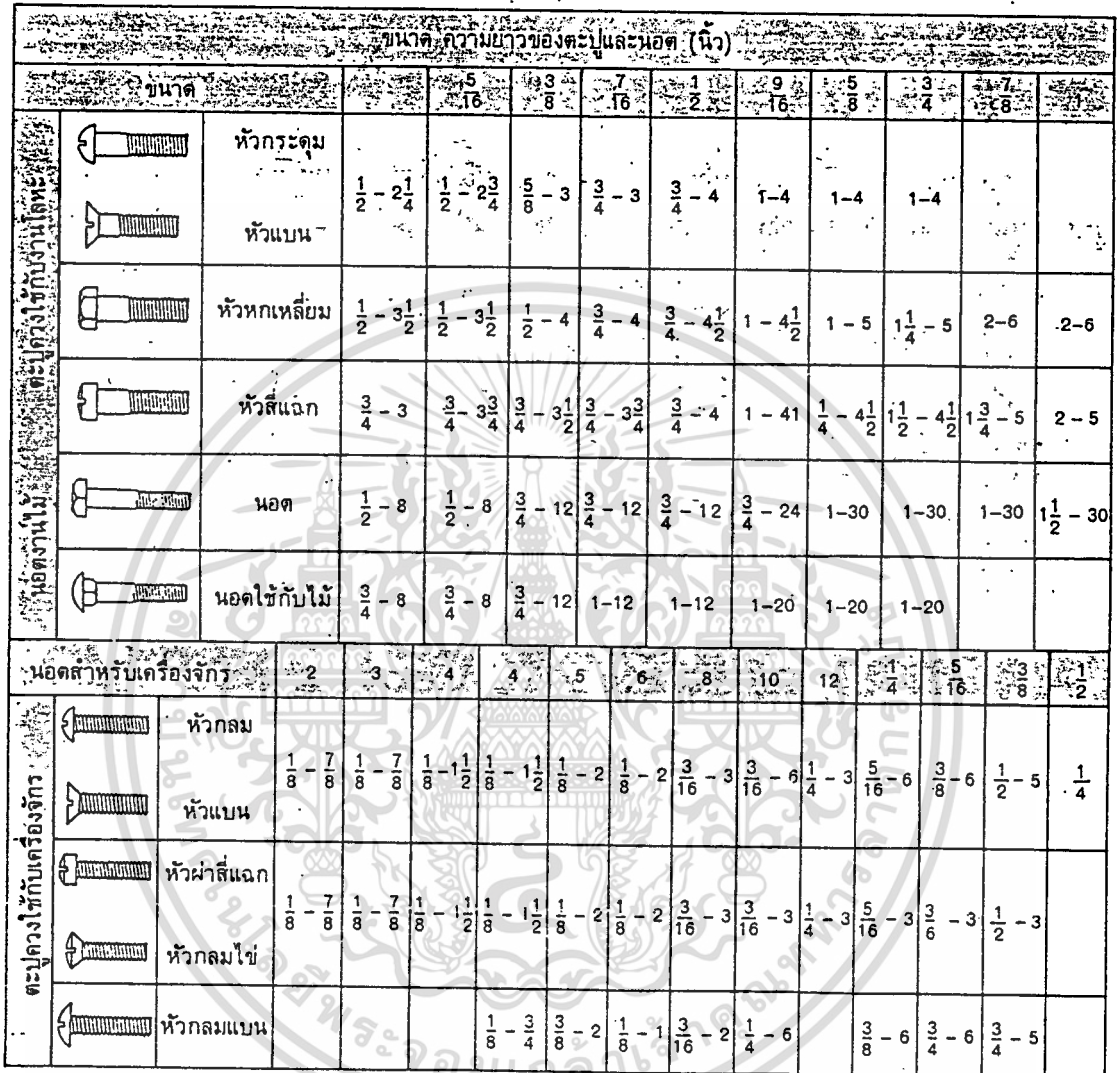 ขนาด ความยาวของตะปูและนอต (นิ้ว)
ขนาด 5/16 3/8 7/16 1/2 9/16 5/8 3/4 7/8 1
ตะปูควงใช้กับงานโลหะ
หัวกระดุม
หัวแบน
1/2 - 2 1/4 1/2 - 2 3/4 5/8 - 3 3/4 - 3 3/4 - 4 1-4 1-4 1-4
หัวหกเหลี่ยม 1/2 - 3 1/2 1/2 - 3 1/2 1/2 - 4 3/4 - 4 3/4 - 4 1/2 1 - 4 1/2 1 - 5 1 1/4 - 5 2-6 2-6
หัวสี่แฉก 3/4 - 3 3/4 - 3 3/4 3/4 - 3 1/2 3/4 - 3 3/4 3/4 - 4 1 - 41 1/4 - 4 1/2 1 1/2 - 4 1/2 1 3/4 - 5 2 - 5
นอตงานไม้
นอต 1/2 - 8 1/2 - 8 3/4 - 12 3/4 - 12 3/4 - 12 3/4 - 24 1-30 1-30 1-30 1 1/2 - 30
นอตใช้กับไม้ 3/4 - 8 3/4 - 8 3/4 - 12 1-12 1-12 1-20 1-20 1-20
นอตสำหรับเครื่องจักร 2 3 4 4 5 6 8 10 12 1/4 5/16 3/8 1/2
ตะปูควงใช้กับเครื่องจักร
หัวกลม
หัวแบน
1/8 - 7/8 1/8 - 7/8 1/8 - 1 1/2 1/8 - 1 1/2 1/8 - 2 1/8 - 2 3/16 - 3 3/16 - 6 1/4 - 3 5/16 - 6 3/8 - 6 1/2 - 5 1/4
หัวผ่าสี่แฉก
หัวกลมไข่
1/8 - 7/8 1/8 - 7/8 1/8 - 1 1/2 1/8 - 1 1/2 1/8 - 2 1/8 - 2 3/16 - 3 3/16 - 3 1/4 - 3 5/16 - 3 3/6 - 3 1/2 - 3
หัวกลมแบน 1/8 - 3/4 3/8 - 2 1/8 - 1 3/16 - 2 1/4 - 6 3/8 - 6 3/4 - 6 3/4 - 5